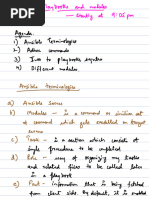 Playbooks and modules
— Starting at 9:05 pm
Agenda
1) Ansible Terminologies
2) Adhoc commands
3) Intro to playbooks syntax
4) Different modules.
Ansible terminologies
a) Ansible Server
b) Modules - is a command or similar set
of command which gets executed on target
server
c) Task - is a section which consist of
single procedure to be completed
d) Role - way of organizing my tasks
and related files to be called later
in a playbook.
e) Fact - information that is being fetched
from client side. To default, it is enabled